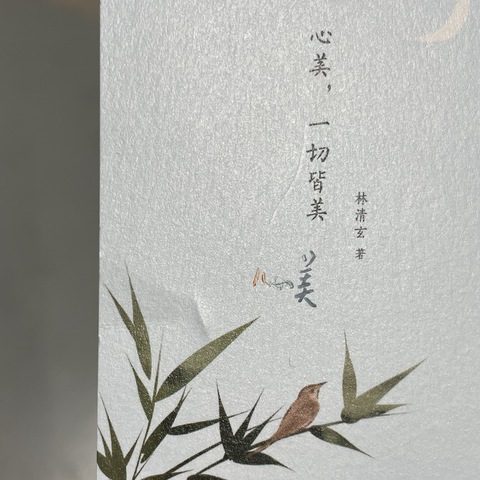 心美，一切皆美
林清玄 著
美